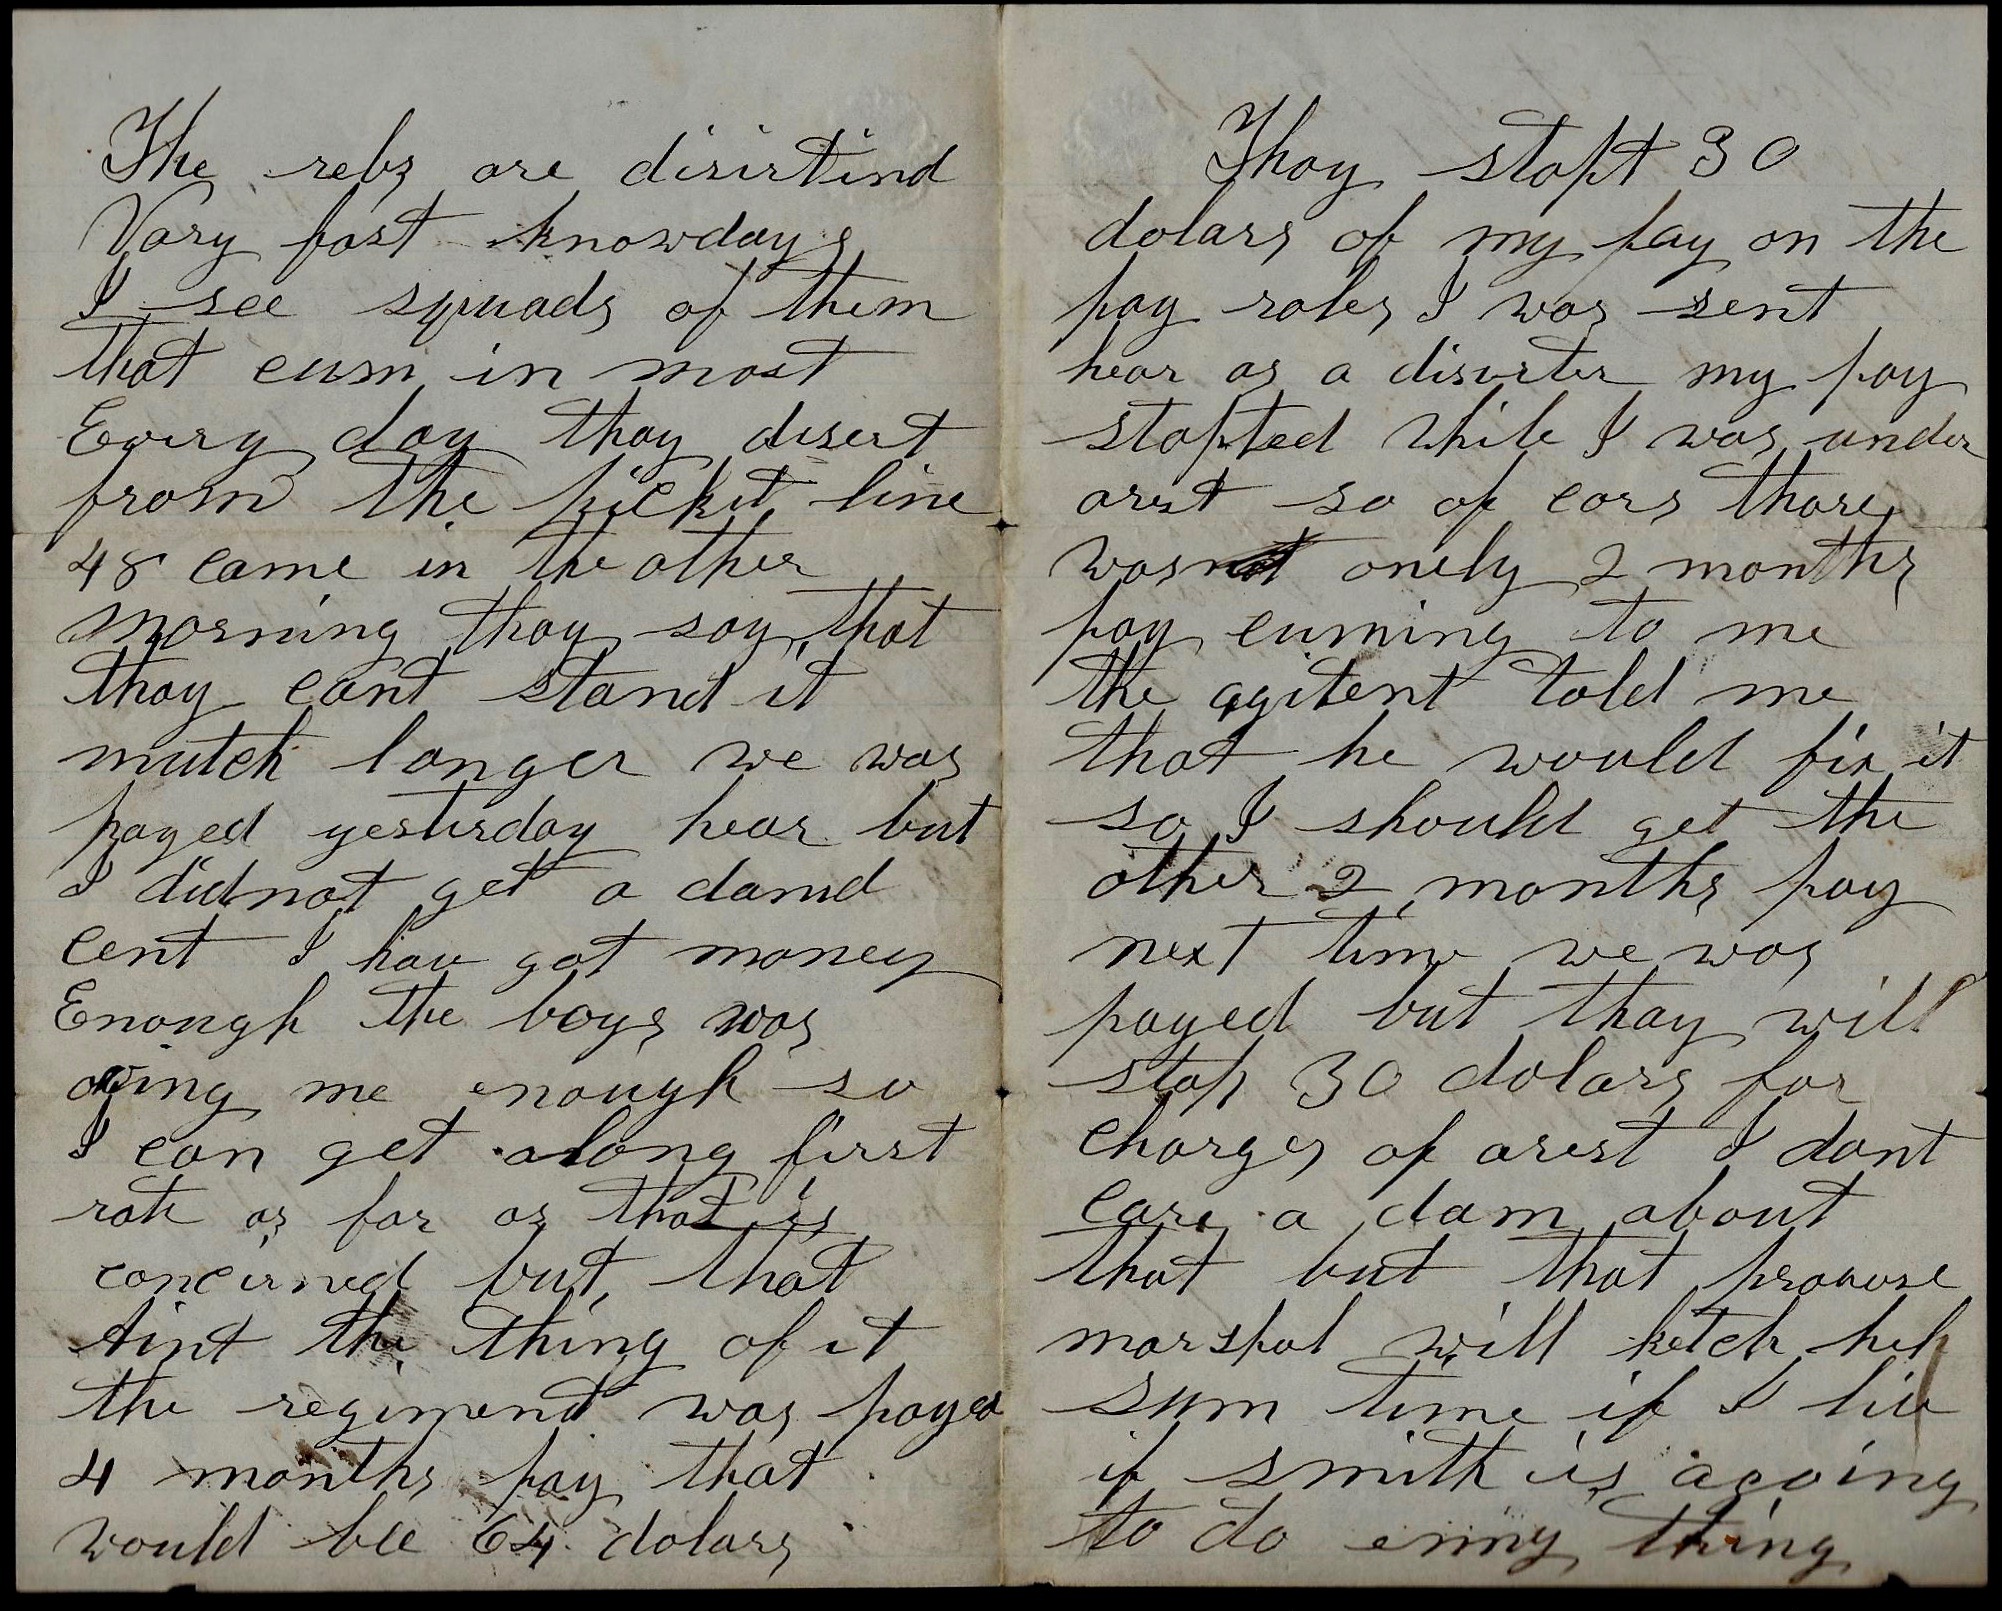 The rebs are disirtind
Vary fast knowdays
I see squads of them
that cum in most
Every day thay desert
from the pickit line
48 came in the other
morning thay say that
thay cant stand it
mutch longer we was
payed yesterday hear but
I didnot get a damd
cent I hav got money
Enough the boys was
owing me enough so
I can get along first
rate as far as that is
concirned but that
Aint the thing of it
the regimend was payed
4 months pay that
would bee 64 dolars
Thay stopt 30
dolars of my pay on the
pay roles I was sent
hear as a diserter my pay
stopted while I was under
arest so of cors thare
was onely 2 months
pay cuming to me
the agitent told me
that he would fix it
so I should get the
other 2 months pay
next time we was
payed but thay will
stop 30 dolars for
charges of arest I dont
care a dam about
that but that provose
marshal will ketch hell
sum time if I live
if smith is agoing
to do enny thing